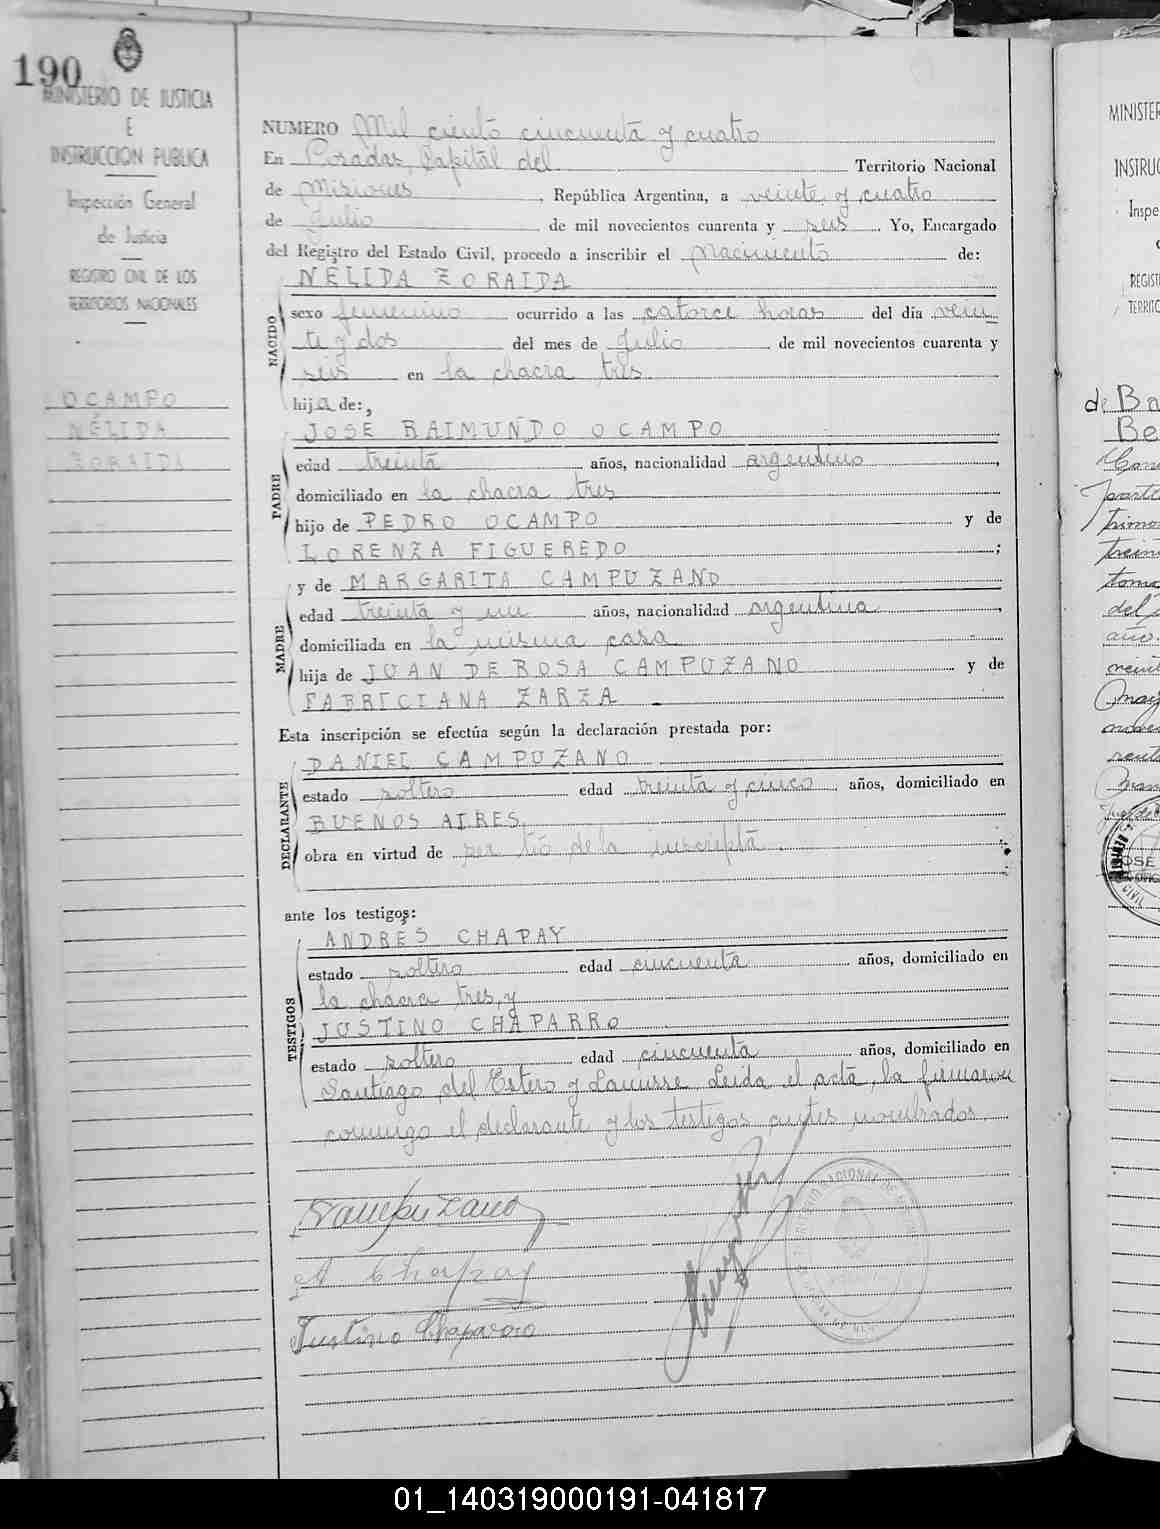 190
MINISTERIO DE JUSTICIA
E
INSTRUCCION PUBLICA
Inspección General
de Justicia
REGISTRO CIVIL DE LOS
TERRITORIOS NACIONALES
OCAMPO
NÉLIDA
ZORAIDA
NUMERO Mil ciento cincuenta y cuatro
En Posadas, Capital del Territorio Nacional
de Misiones, República Argentina, a veinte y cuatro
de Julio de mil novecientos cuarenta y seis. Yo, Encargado
del Registro del Estado Civil, procedo a inscribir el nacimiento de:
NÉLIDA ZORAIDA
NACIDO
sexo femenino ocurrido a las catorce horas del día vein
te y dos del mes de Julio de mil novecientos cuarenta y
seis en la chacra tres
hija de:,
JOSE RAIMUNDO OCAMPO
PADRE
edad treinta años, nacionalidad argentino,
domiciliado en la chacra tres
hijo de PEDRO OCAMPO y de
LORENZA FIGUEREDO;
y de MARGARITA CAMPUZANO
MADRE
edad treinta y un años, nacionalidad argentina,
domiciliada en la misma casa
hija de JUAN DE ROSA CAMPUZANO y de
FABRICIANA ZARZA.
Esta inscripción se efectúa según la declaración prestada por:
DANIEL CAMPUZANO
DECLARANTE
estado soltero edad treinta y cinco años, domiciliado en
BUENOS AIRES,
obra en virtud de ser tío de la inscripta.
ante los testigos:
ANDRÉS CHAPAY
TESTIGOS
estado soltero edad cincuenta años, domiciliado en
la chacra tres, y
JUSTINO CHAPARRO
estado soltero edad cincuenta años, domiciliado en
Santiago del Estero y Lanusse. Leída el acta, la firmaron
conmigo el declarante y los testigos antes nombrados.
Campuzano
A Chapay
Justino Chaparro
MINISTER
INSTRUC
Inspe
REGIST
TERRITO
de Ba
Be
del
año.
JOSE
CIVIL
01_140319000191-041817